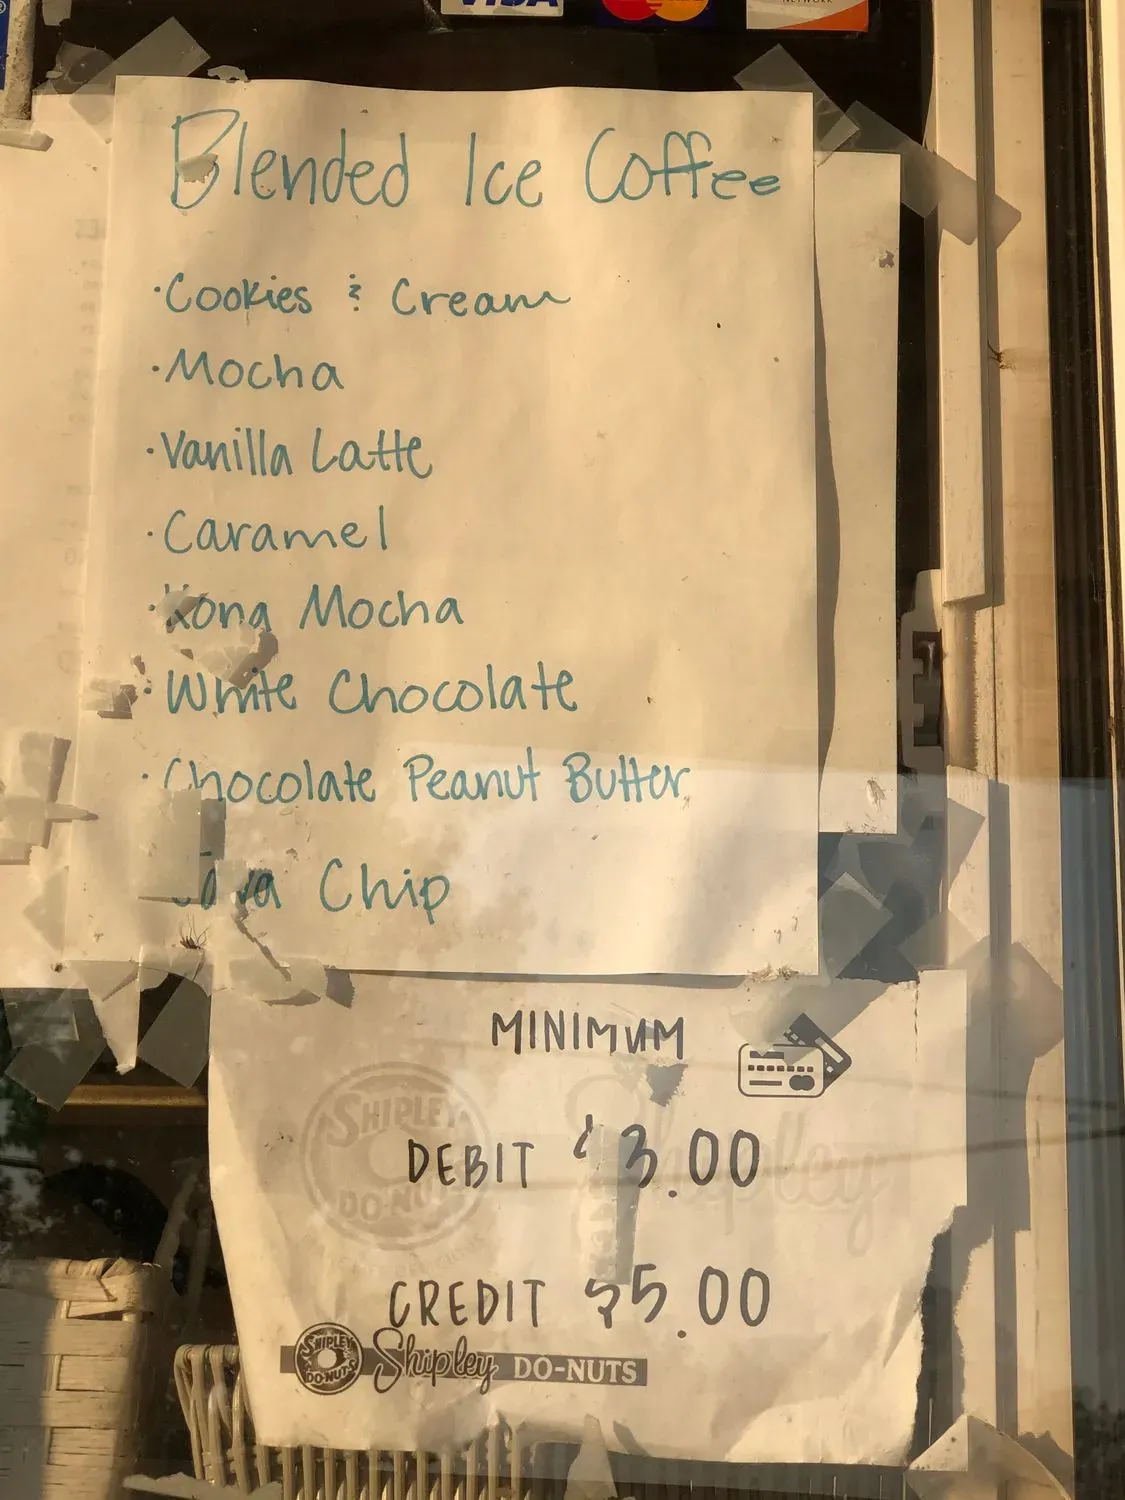 VISA
NETWORK
Blended Ice Coffee
·Cookies & Cream
·Mocha
·Vanilla Latte
·Caramel
·Kona Mocha
·White Chocolate
·Chocolate Peanut Butter
Java Chip
MINIMUM
SHIPLEY
DO-NUTS
Shipley
DEBIT $3.00
CREDIT $5.00
SHIPLEY
DO-NUTS
Shipley DO-NUTS